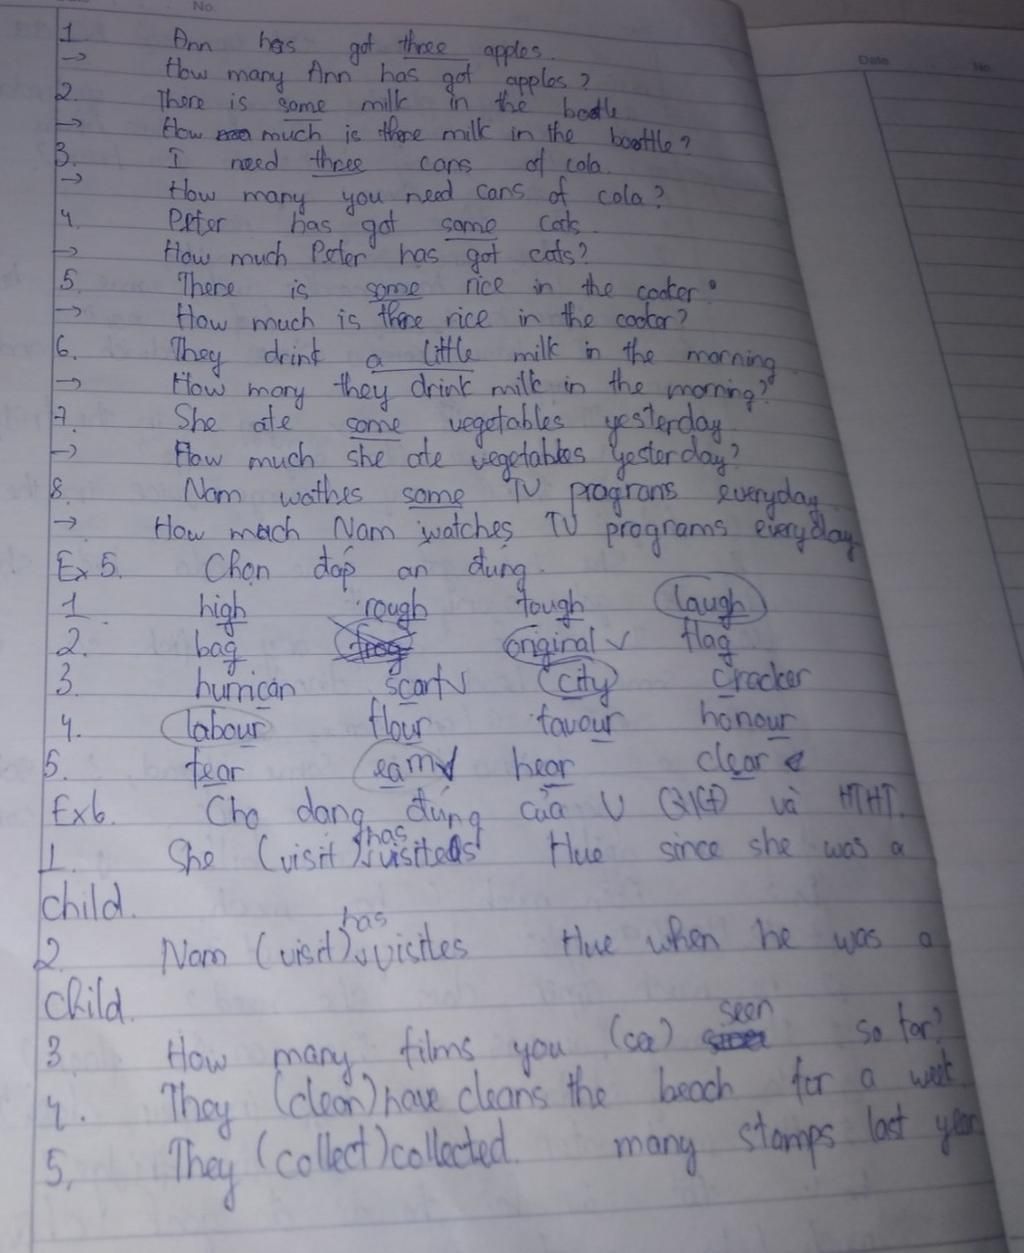 No
Date No.
1 Ann has got three apples.
→ How many Ann has got apples?
2. There is some milk in the bootle
→ How much is there milk in the boottle?
3. I need three cans of cola.
→ How many you need cans of cola?
4 Peter has got some cats.
→ How much Peter has got cats?
5. There is some rice in the cooker.
→ How much is there rice in the cooker?
6. They drink a little milk in the morning
→ How many they drink milk in the morning?
7. She ate some vegetables yesterday
→ How much she ate vegetables yesterday?
8. Nam wathes some TV programs everyday
→ How mach Nam watches TV programs everyday
Ex 5. Chọn đáp an đung.
1 high rough tough laugh
2. bag frog original v flag
3. hurrican scart v city cracker
4. labour flour favour honour
5. fear earn v hear clear
Ex6. Cho dang đúng của V (QKĐ) và HTHT.
1. She (visit) has visiteds Hue since she was a
child.
2 Nam (visit) has visites Hue when he was a
child.
3. How many films you (se) seen so far?
4. They (clean) have cleans the beach for a week
5. They (collect) collected. many stamps last year